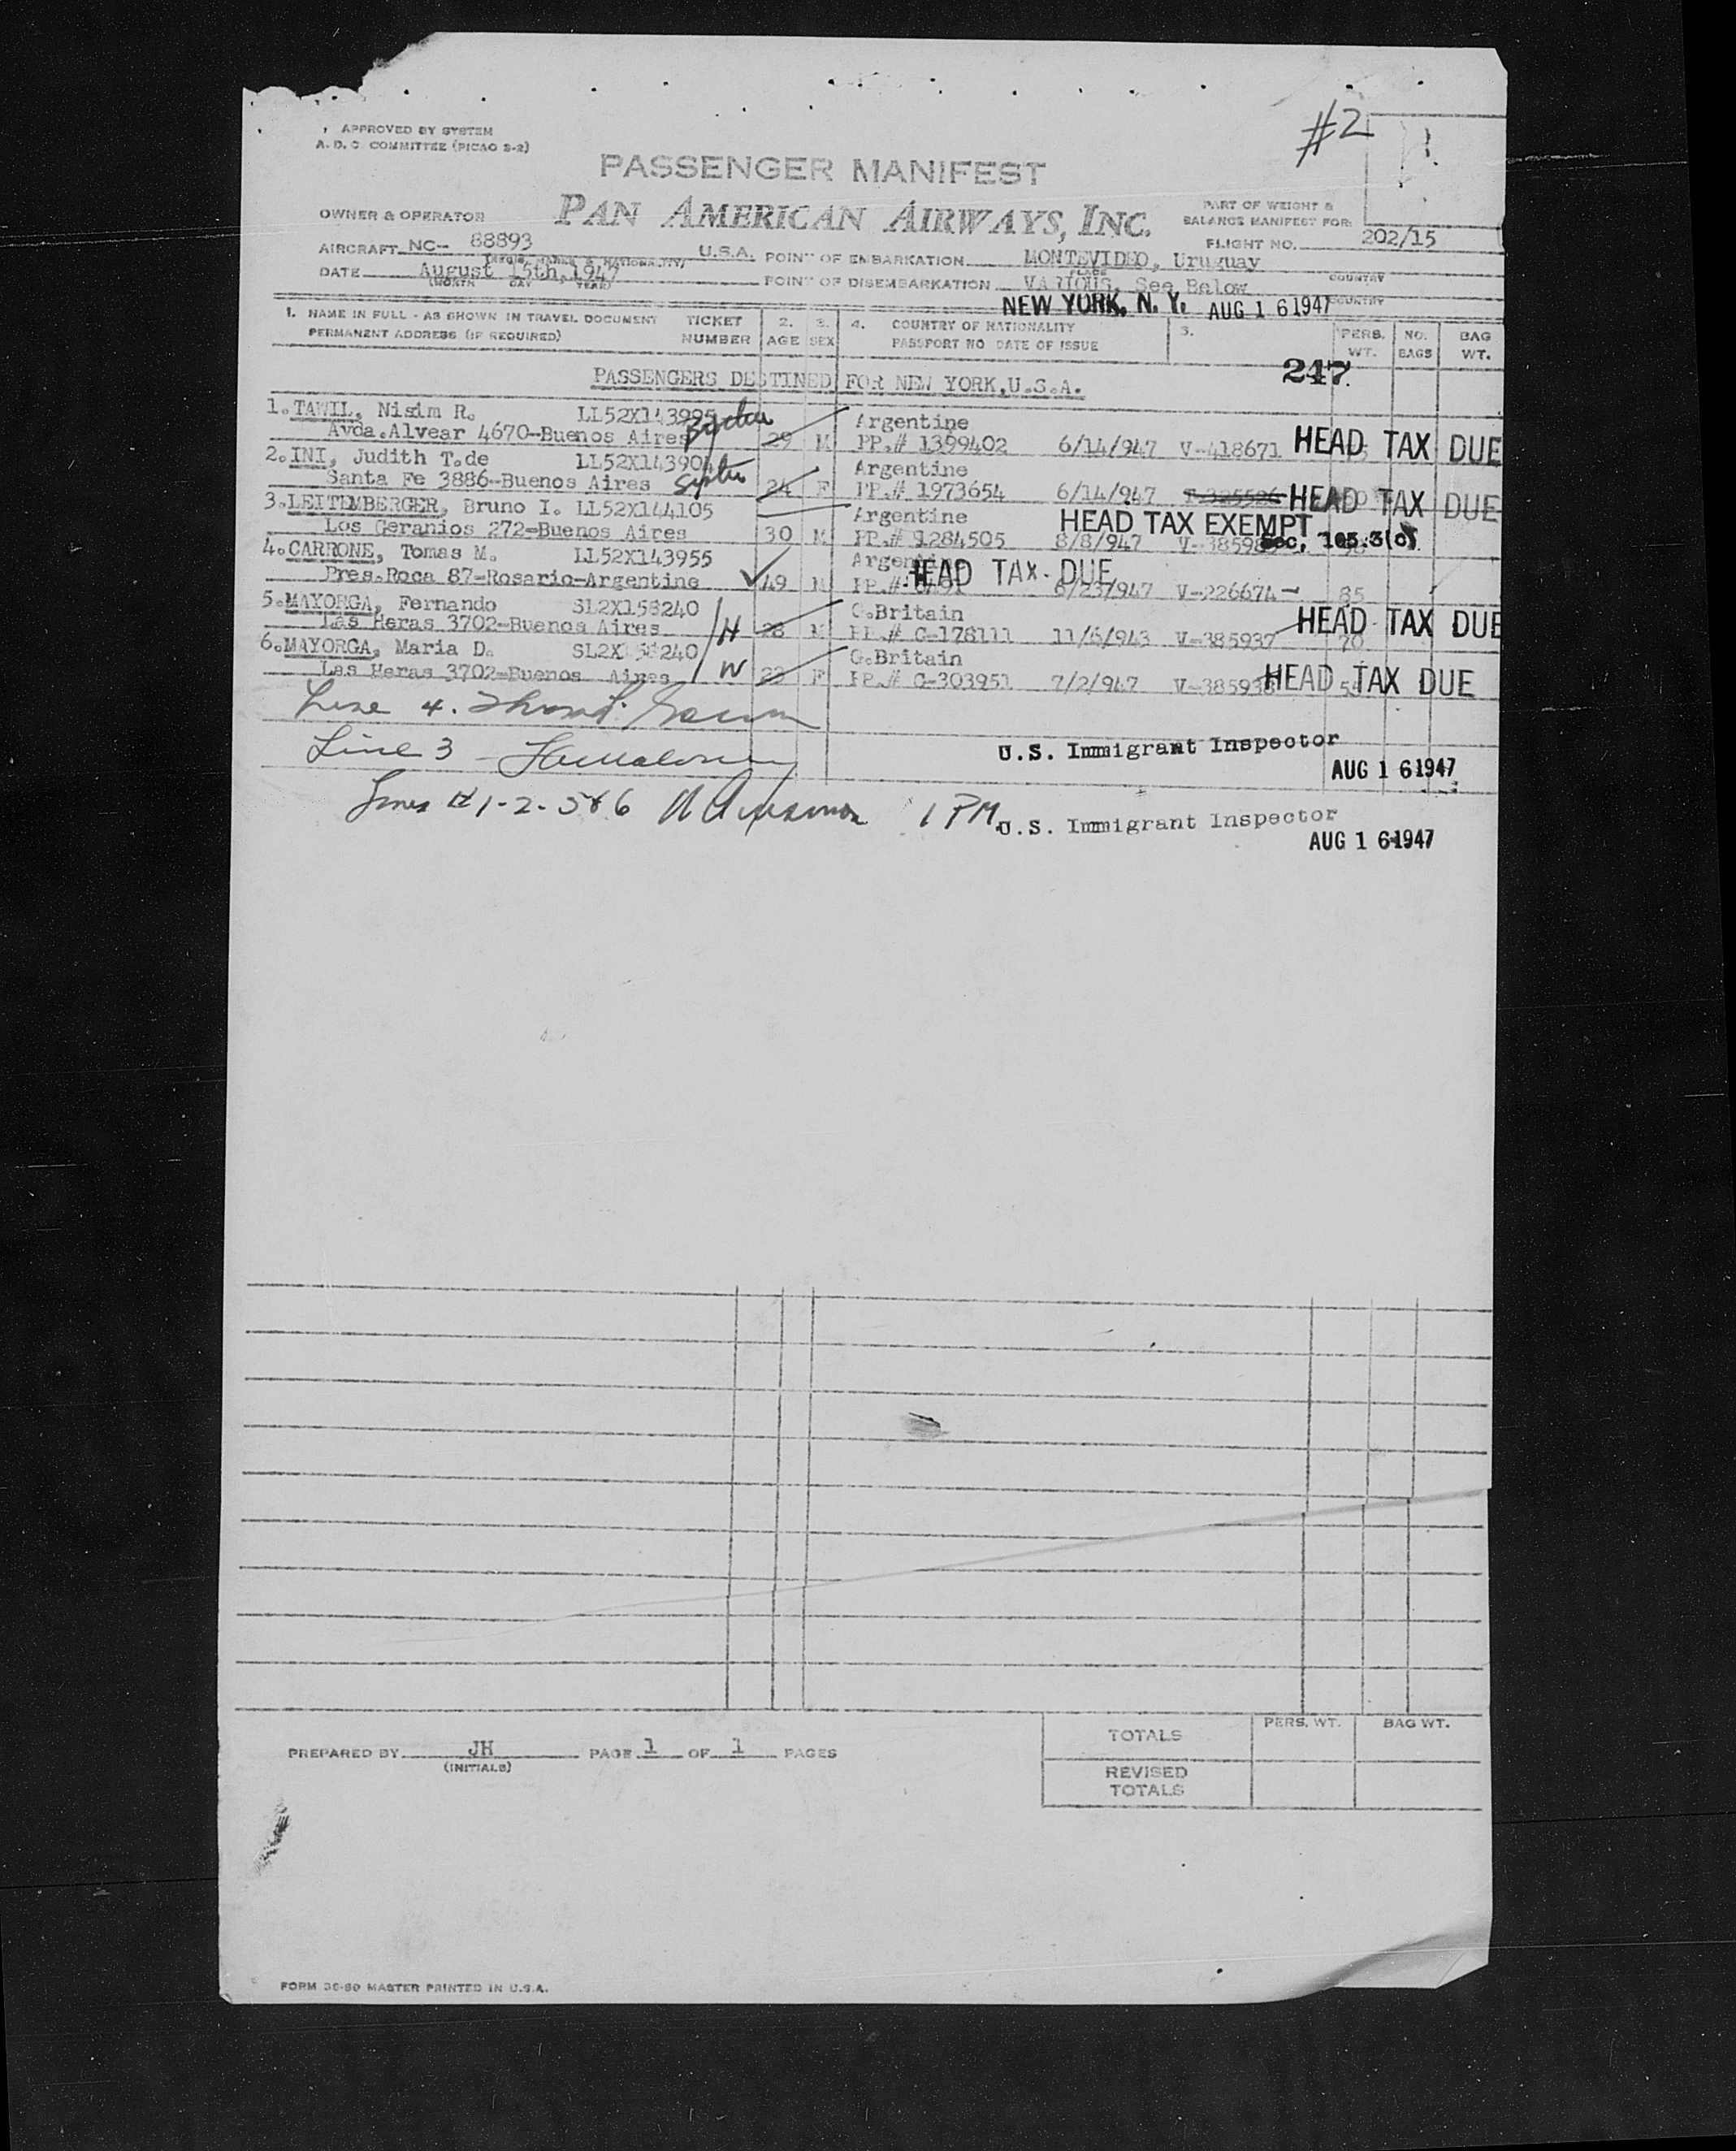 #2
APPROVED BY SYSTEM
A. D. C. COMMITTEE (PICAO S-2)
PASSENGER MANIFEST
OWNER & OPERATOR PAN AMERICAN AIRWAYS, INC.
PART OF WEIGHT &
BALANCE MANIFEST FOR:
AIRCRAFT NC-- 88893 U.S.A. POINT OF EMBARKATION MONTEVIDEO, Uruguay FLIGHT NO. 202/15
PLACE COUNTRY
DATE August 15th, 1947 POINT OF DISEMBARKATION VARIOUS, See Below
(MONTH DAY YEAR) COUNTRY
NEW YORK, N. Y. AUG 16 1947
1. NAME IN FULL - AS SHOWN IN TRAVEL DOCUMENT TICKET 2. 3. 4. COUNTRY OF NATIONALITY 5. PERS. NO. BAG
PERMANENT ADDRESS (IF REQUIRED) NUMBER AGE SEX PASSPORT NO DATE OF ISSUE WT. BAGS WT.
247
PASSENGERS DESTINED FOR NEW YORK, U.S.A.
1. TAWIL, Nisim R. LL52X143995 Argentine
Avda. Alvear 4670--Buenos Aires 29 M PP.# 1399402 6/14/947 V-418671 HEAD TAX DUE
2. INI, Judith T. de LL52X143904 Argentine
Santa Fe 3886--Buenos Aires 24 F PP.# 1973654 6/14/947 HEAD TAX DUE
3. LEITEMBERGER, Bruno I. LL52X144105 Argentine HEAD TAX EXEMPT
Los Geranios 272-Buenos Aires 30 M PP.# 1284505 8/8/947 Sec. 105.3(c)
4. CARRONE, Tomas M. LL52X143955 Argentine HEAD TAX DUE
Pres. Roca 87-Rosario-Argentine 49 M V-226674 85
5. MAYORGA, Fernando SL2X158240 G.Britain
Las Heras 3702-Buenos Aires H 28 M PP.# C-178111 11/6/943 V-385937 70 HEAD TAX DUE
6. MAYORGA, Maria D. SL2X158240 G.Britain
Las Heras 3702-Buenos Aires W 22 F PP.# C-303951 7/2/947 V-385938 HEAD TAX DUE
Line 4.
Line 3
U.S. Immigrant Inspector
AUG 16 1947
Lines # 1-2-5&6 1 PM
U.S. Immigrant Inspector
AUG 16 1947
PERS. WT. BAG WT.
TOTALS
PREPARED BY JH PAGE 1 OF 1 PAGES
(INITIALS)
REVISED
TOTALS
FORM 36-80 MASTER PRINTED IN U.S.A.